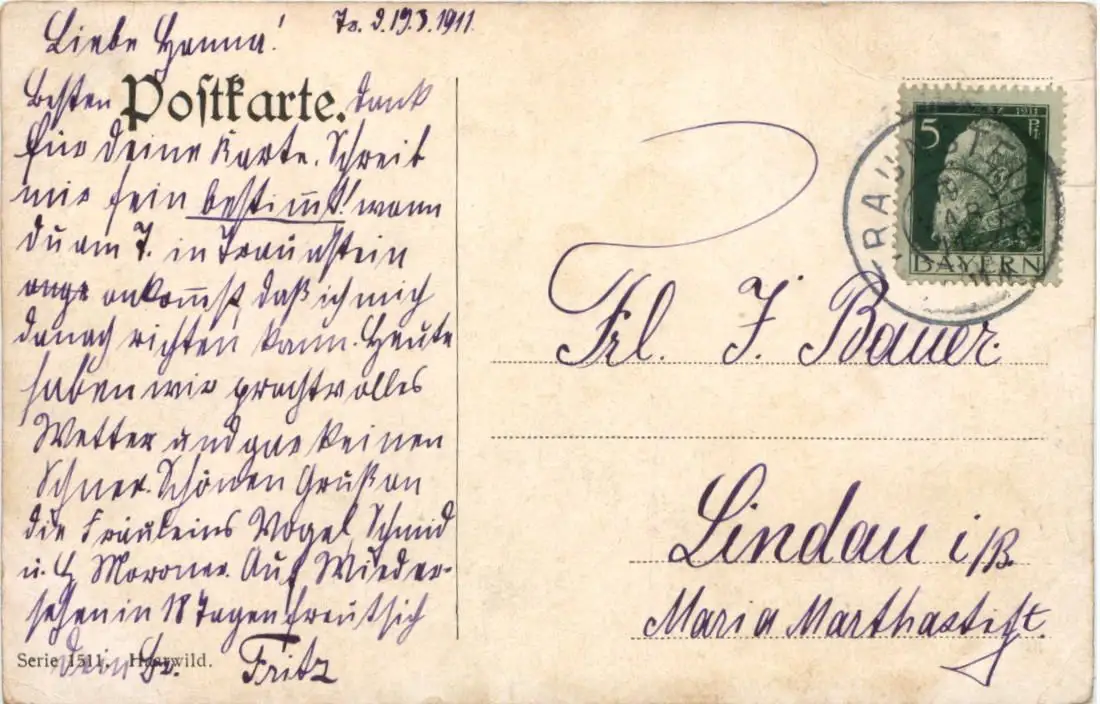 Liebe Hanna! Tr. d. 19.3.1911.
Besten Postkarte. Dank
für deine Karte. Schreib
mir fein bestimmt! wann
du am 7. in Traunstein
ankommst, daß ich mich
danach richten kann. Heute
haben wir prachtvolles
Wetter und gar keinen
Schnee. Schönen Gruß an
die Fräuleins Vogel, Schmid
u. Auf Wieder-
sehen in 18 Tagen freut sich
Dein Br. Fritz
Serie 1511. Haarwild.
5 Pf
1911
BAYERN
TRAUNSTEIN
Frl. J. Bauer.
Lindau i/B.
Maria Marthastift.